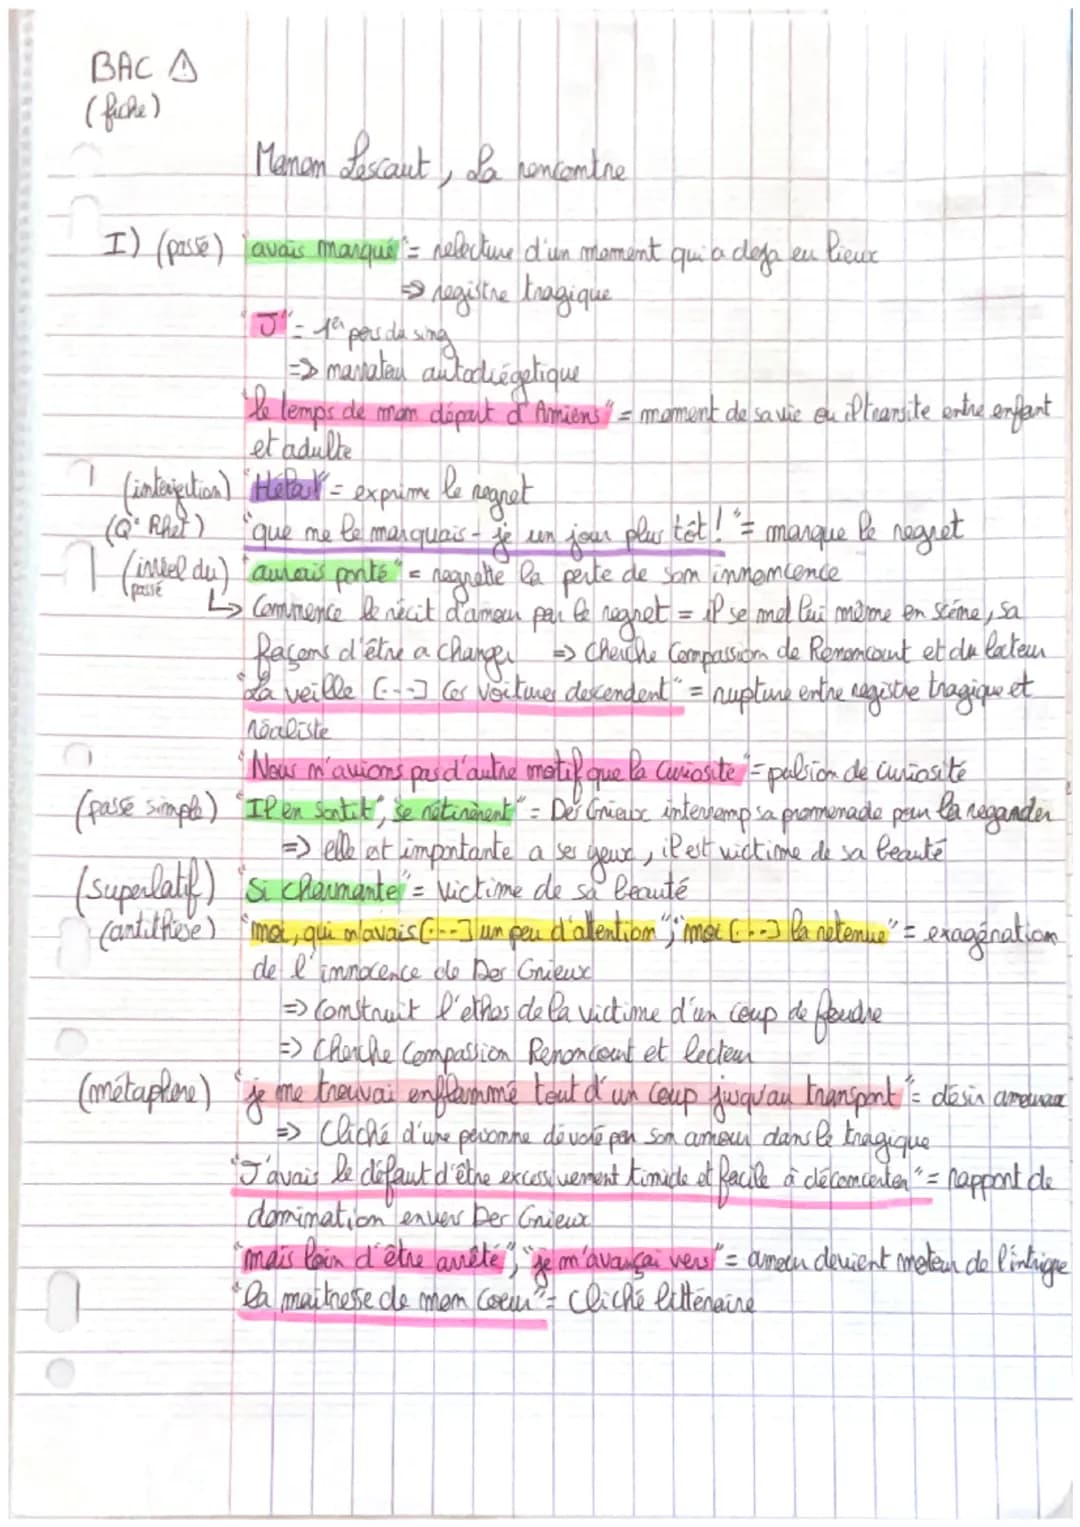 BAC ⚠
(fiche)
Manon Lescaut, La rencontre
I) (passé) "avais marqué" = relecture d'un moment qui a deja eu lieux
=> registre tragique
"J" = 1er pers du sing
=> narrateu autodiégétique
"le temps de mon départ d'Amiens" = moment de sa vie ou il transite entre enfant
et adulte
(interjection) "Hélas" = exprime le regret
(Q° Rhet) "que ne le marquais-je un jour plus tôt!" = marque le regret
(irréel du passé) "aurais porté" = regrette la perte de son innoncence
↳ Commence le récit d'amour par le regret = il se met lui même en scène, sa
façons d'être a changer => Cherche Compassion de Renoncourt et du lecteur
"La veille [...] Ces voitures descendent" = rupture entre registre tragique et
réaliste
"Nous n'avions pas d'autre motif que la curiosité" = pulsion de curiosité
(passé simple) "Il en sortit", "se retirèrent" = Des Grieux interromp sa promenade pour la regarder
=> elle est importante a ses yeux, il est victime de sa beauté
(superlatif) "Si charmante" = Victime de sa beauté
(antithèse) "moi, qui n'avais [...] un peu d'attention"; "moi [...] la retenue" = exagération
de l'innocence de Des Grieux
=> Construit l'ethos de la victime d'un coup de foudre
=> Cherche Compassion Renoncourt et lecteur
(métaphore) "je me trouvai enflammé tout d'un coup jusqu'au transport" = désir amoureux
=> Cliché d'une personne dévoré par son amour dans le tragique
"J'avais le défaut d'être excessivement timide et facile à déconcerter" = rapport de
domination envers Des Grieux
"mais loin d'être arrêté", "je m'avançai vers" = amour devient moteur de l'intrigue
"la maitresse de mon coeur" = Cliché littéraire